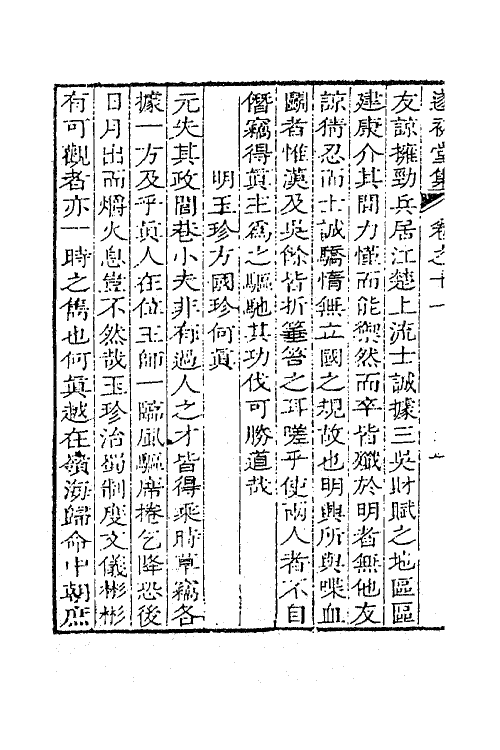 遂初堂集 卷之十一
友諒擁勁兵居江楚上流士誠據三吳財賦之地區區
建康介其間力僅而能禦然而卒皆殲於明者無他友
諒猜忍而士誠驕惰無立國之規故也明興所與喋血
鬭者惟漢及吳餘皆折箠笞之耳嗟乎使兩人者不自
僭竊得眞主爲之驅馳其功伐可勝道哉
明玉珍方國珍何眞
元失其政閭巷小夫非有過人之才皆得乘時草竊各
據一方及乎眞人在位王師一臨風驅席捲乞降恐後
日月出而爝火息豈不然哉玉珍治蜀制度文儀彬彬
有可觀者亦一時之雋也何眞越在嶺海歸命中朝庶